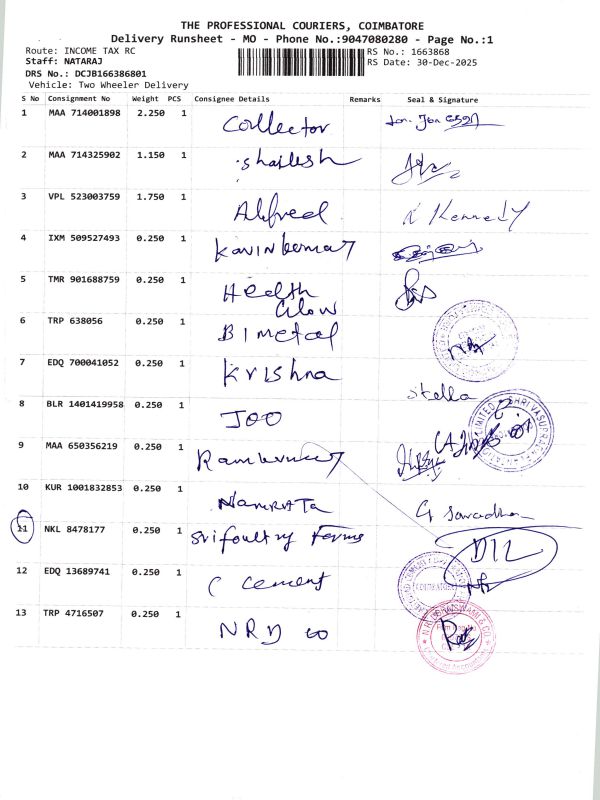 THE PROFESSIONAL COURIERS, COIMBATORE
Delivery Runsheet - MO - Phone No.:9047080280 - Page No.:1
Route: INCOME TAX RC
RS No.: 1663868
Staff: NATARAJ
RS Date: 30-Dec-2025
DRS No.: DCJB166386801
Vehicle: Two Wheeler Delivery
S No Consignment No Weight PCS Consignee Details Remarks Seal & Signature
1 MAA 714001898 2.250 1 Collector
2 MAA 714325902 1.150 1 Shailesh
3 VPL 523003759 1.750 1 Alfred R Kennedy
4 IXM 509527493 0.250 1 Kavinkumar
5 TMR 901688759 0.250 1 Health
Glow
6 TRP 638056 0.250 1 Bimetal
7 EDQ 700041052 0.250 1 Krishna Stella
8 BLR 1401419958 0.250 1 JOO
9 MAA 650356219 0.250 1
10 KUR 1001832853 0.250 1 Namrata G
11 NKL 8478177 0.250 1 Sri Poultry Farms D12
12 EDQ 13689741 0.250 1 C cement
13 TRP 4716507 0.250 1 NRD co